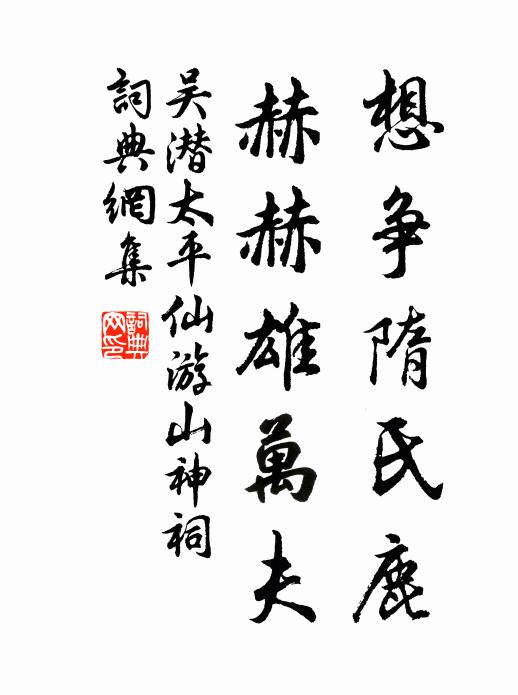 想争隋氏鹿
赫赫雄萬夫
吴潜太平仙游山神祠
詞典網集
詞典网印